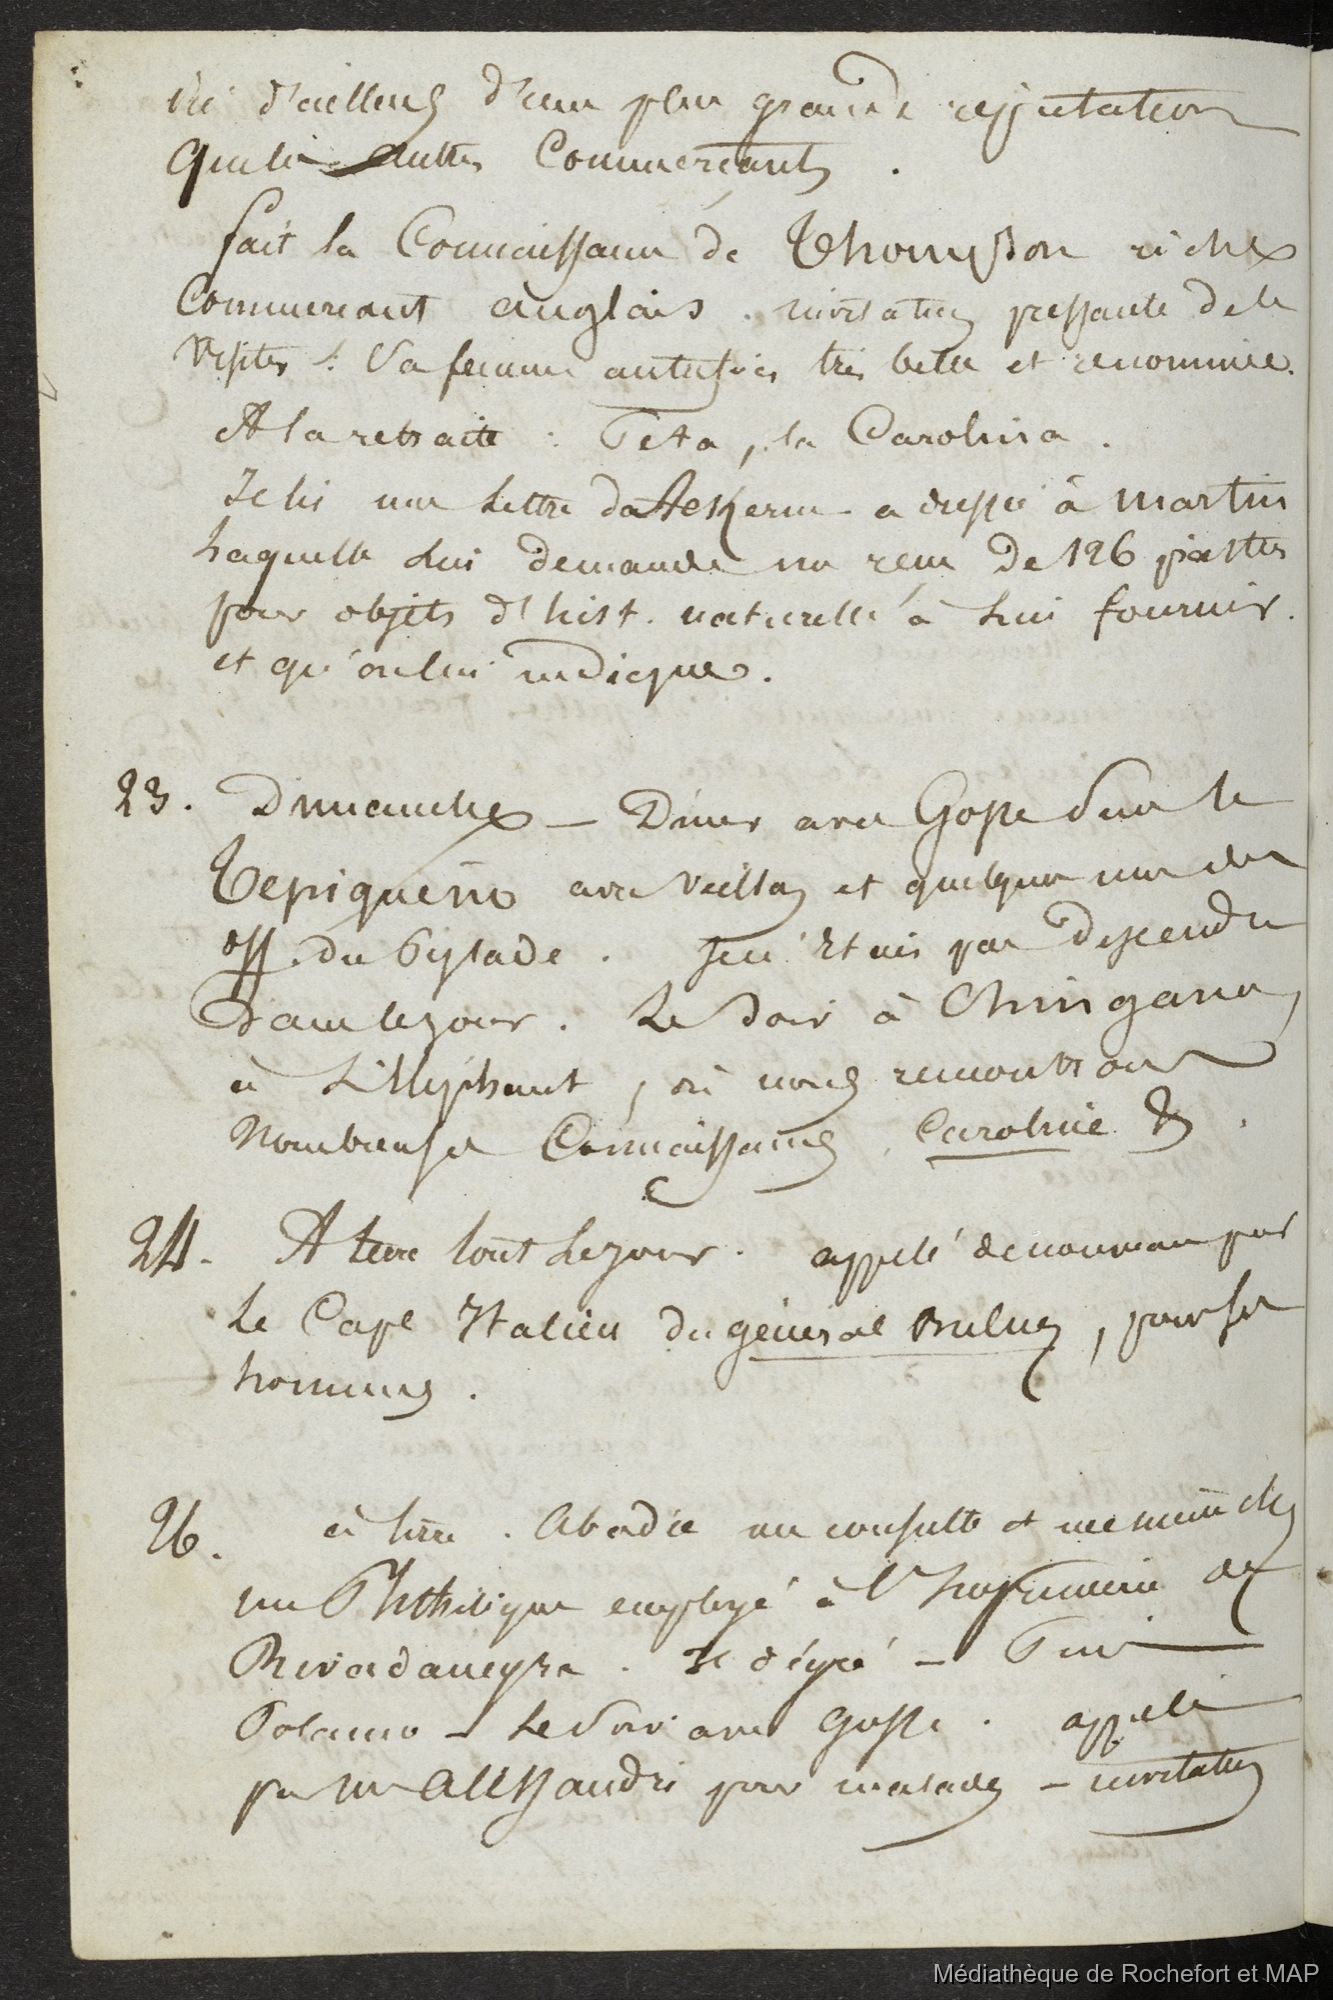 d'ailleurs d'une plus grande reputation
que les autres Commercants .
fait la Connaissance de Thompson riche
Commercant anglais . invitation pressante de le
visiter . Sa femme autrefois très belle et renommée .
A la retraite : Peta , la Carolina .
Je lis une Lettre adressée à Martin
Laquelle lui demande un de 126 piastres
pour objets d'hist . naturelle à lui fournir .
et qu'on lui indique .
23 . Dimanche — Diner avec Gosse sur le
Tepiqueño avec et quelques uns des
off . du Pylade . Je n'étais pas descendu
dans le jour . Le soir à Chingana ,
à L'Elephant , où nous rencontrons
Nombreuses Connaissances . Caroline &
24 . A terre tout Le jour . appelé de nouveau par
Le Cape Italien du général Bulnes , pour ses
hommes .
26 . à terre . Abadie me consulte et me mène chez
un Phthisique employé à l'Imprimerie de
Rivadaneyra . 3e dégré —
Polanco — Le Soir avec Gosse . appelé
par Mr Alessandri pour malades — invitation
Médiathèque de Rochefort et MAP